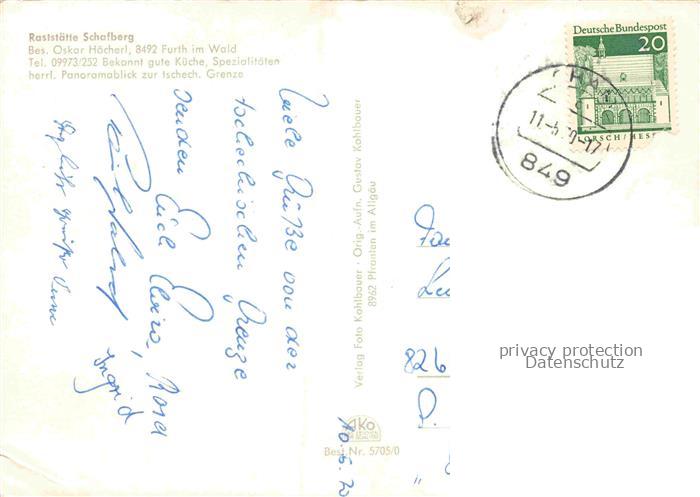 Raststätte Schafberg
Bes. Oskar Höcherl, 8492 Furth im Wald
Tel. 09973/252 Bekannt gute Küche, Spezialitäten
herrl. Panoramablick zur tschech. Grenze
Viele Grüße von der
tschechischen Grenze
senden Euch
Rosa
Ingrid
Verlag Foto Kohlbauer · Orig.-Aufn. Gustav Kohlbauer
8962 Pfronten im Allgäu
Ako
Best. Nr. 5705/0
10.6.70
Deutsche Bundespost
20
LORSCH/HESS
849
826
privacy protection
Datenschutz